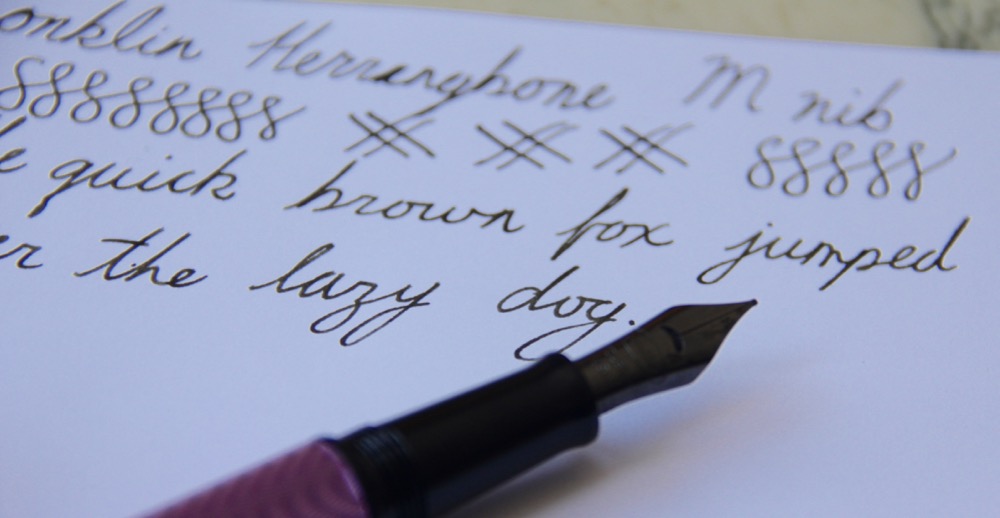 onklin Herrangbone M nib
88888888 ### 88888
e quick brown fox jumped
er the lazy dog.